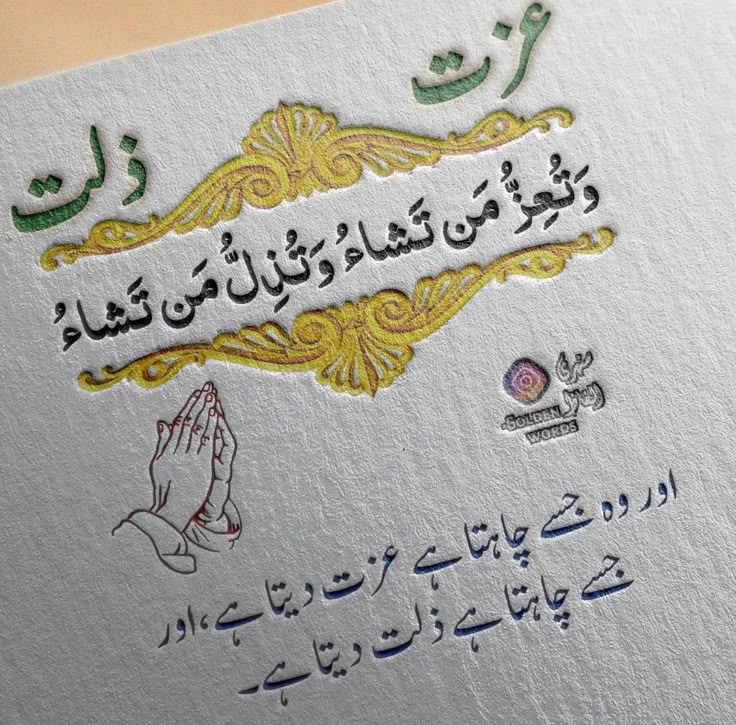 عزت
ذلت
وَتُعِزُّ مَن تَشاءُ وَتُذِلُّ مَن تَشاءُ
سنہری الفاظ
GOLDEN
WORDS
اور وہ جسے چاہتا ہے عزت دیتا ہے،اور
جسے چاہتا ہے ذلت دیتا ہے۔